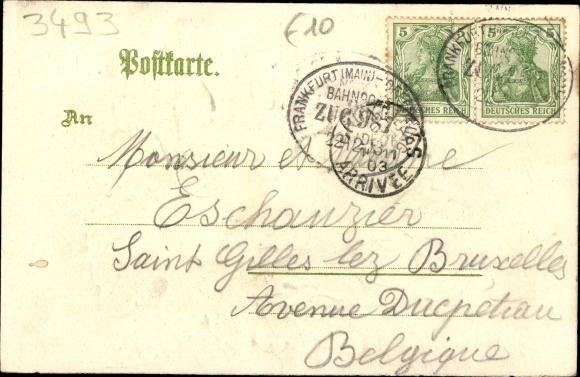 3493
£10
Postkarte.
5 5
DEUTSCHES REICH DEUTSCHES REICH
FRANKFURT (MAIN)-
BAHNPOST
ZUG
03
ARRIVÉE
An
Monsieur et
Eschauzier
Saint Gilles lez Bruxelles
Avenue Ducpétiau
Belgique